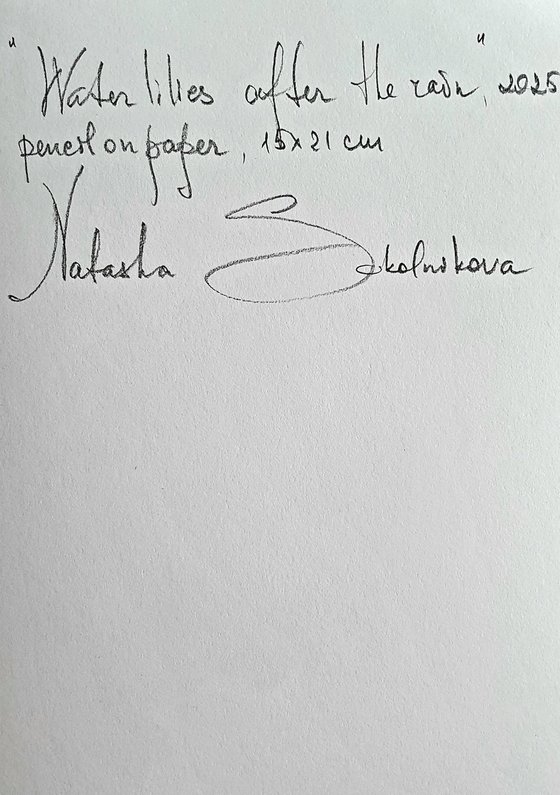 "Water lilies after the rain", 2025
pencil on paper, 15x21 cm
Natasha Sokolnikova